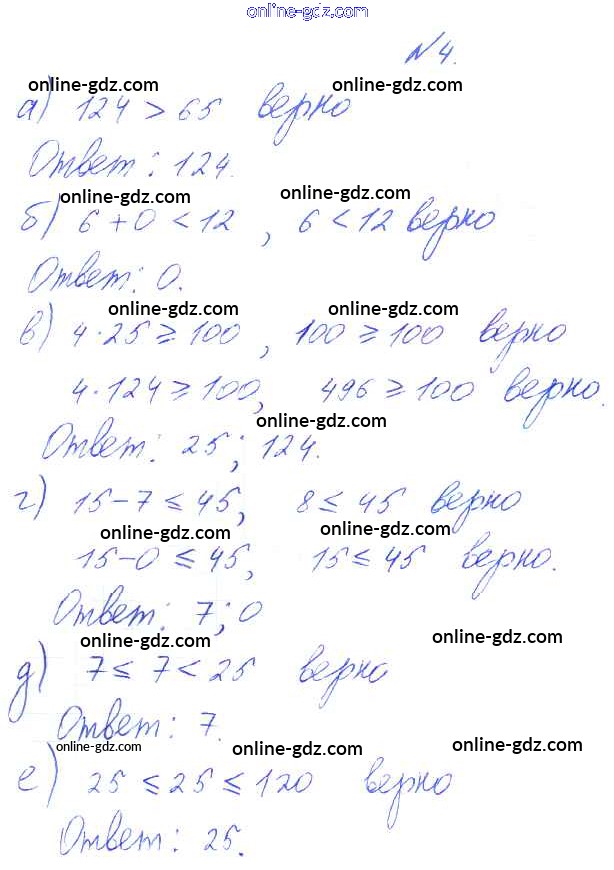 online-gdz.com
N4.
online-gdz.com online-gdz.com
а) 124 > 65 верно
Ответ: 124.
online-gdz.com online-gdz.com
б) 6 + 0 < 12 , 6 < 12 верно
Ответ: 0.
online-gdz.com online-gdz.com
в) 4 · 25 ⩾ 100 , 100 ⩾ 100 верно
4 · 124 ⩾ 100, 496 ⩾ 100 верно.
online-gdz.com
Ответ: 25; 124.
г) 15 - 7 ⩽ 45, 8 ⩽ 45 верно
online-gdz.com online-gdz.com
15 - 0 ⩽ 45, 15 ⩽ 45 верно.
Ответ: 7; 0
online-gdz.com online-gdz.com
д) 7 ⩽ 7 < 25 верно
Ответ: 7.
online-gdz.com online-gdz.com online-gdz.com
е) 25 ⩽ 25 ⩽ 120 верно
Ответ: 25.